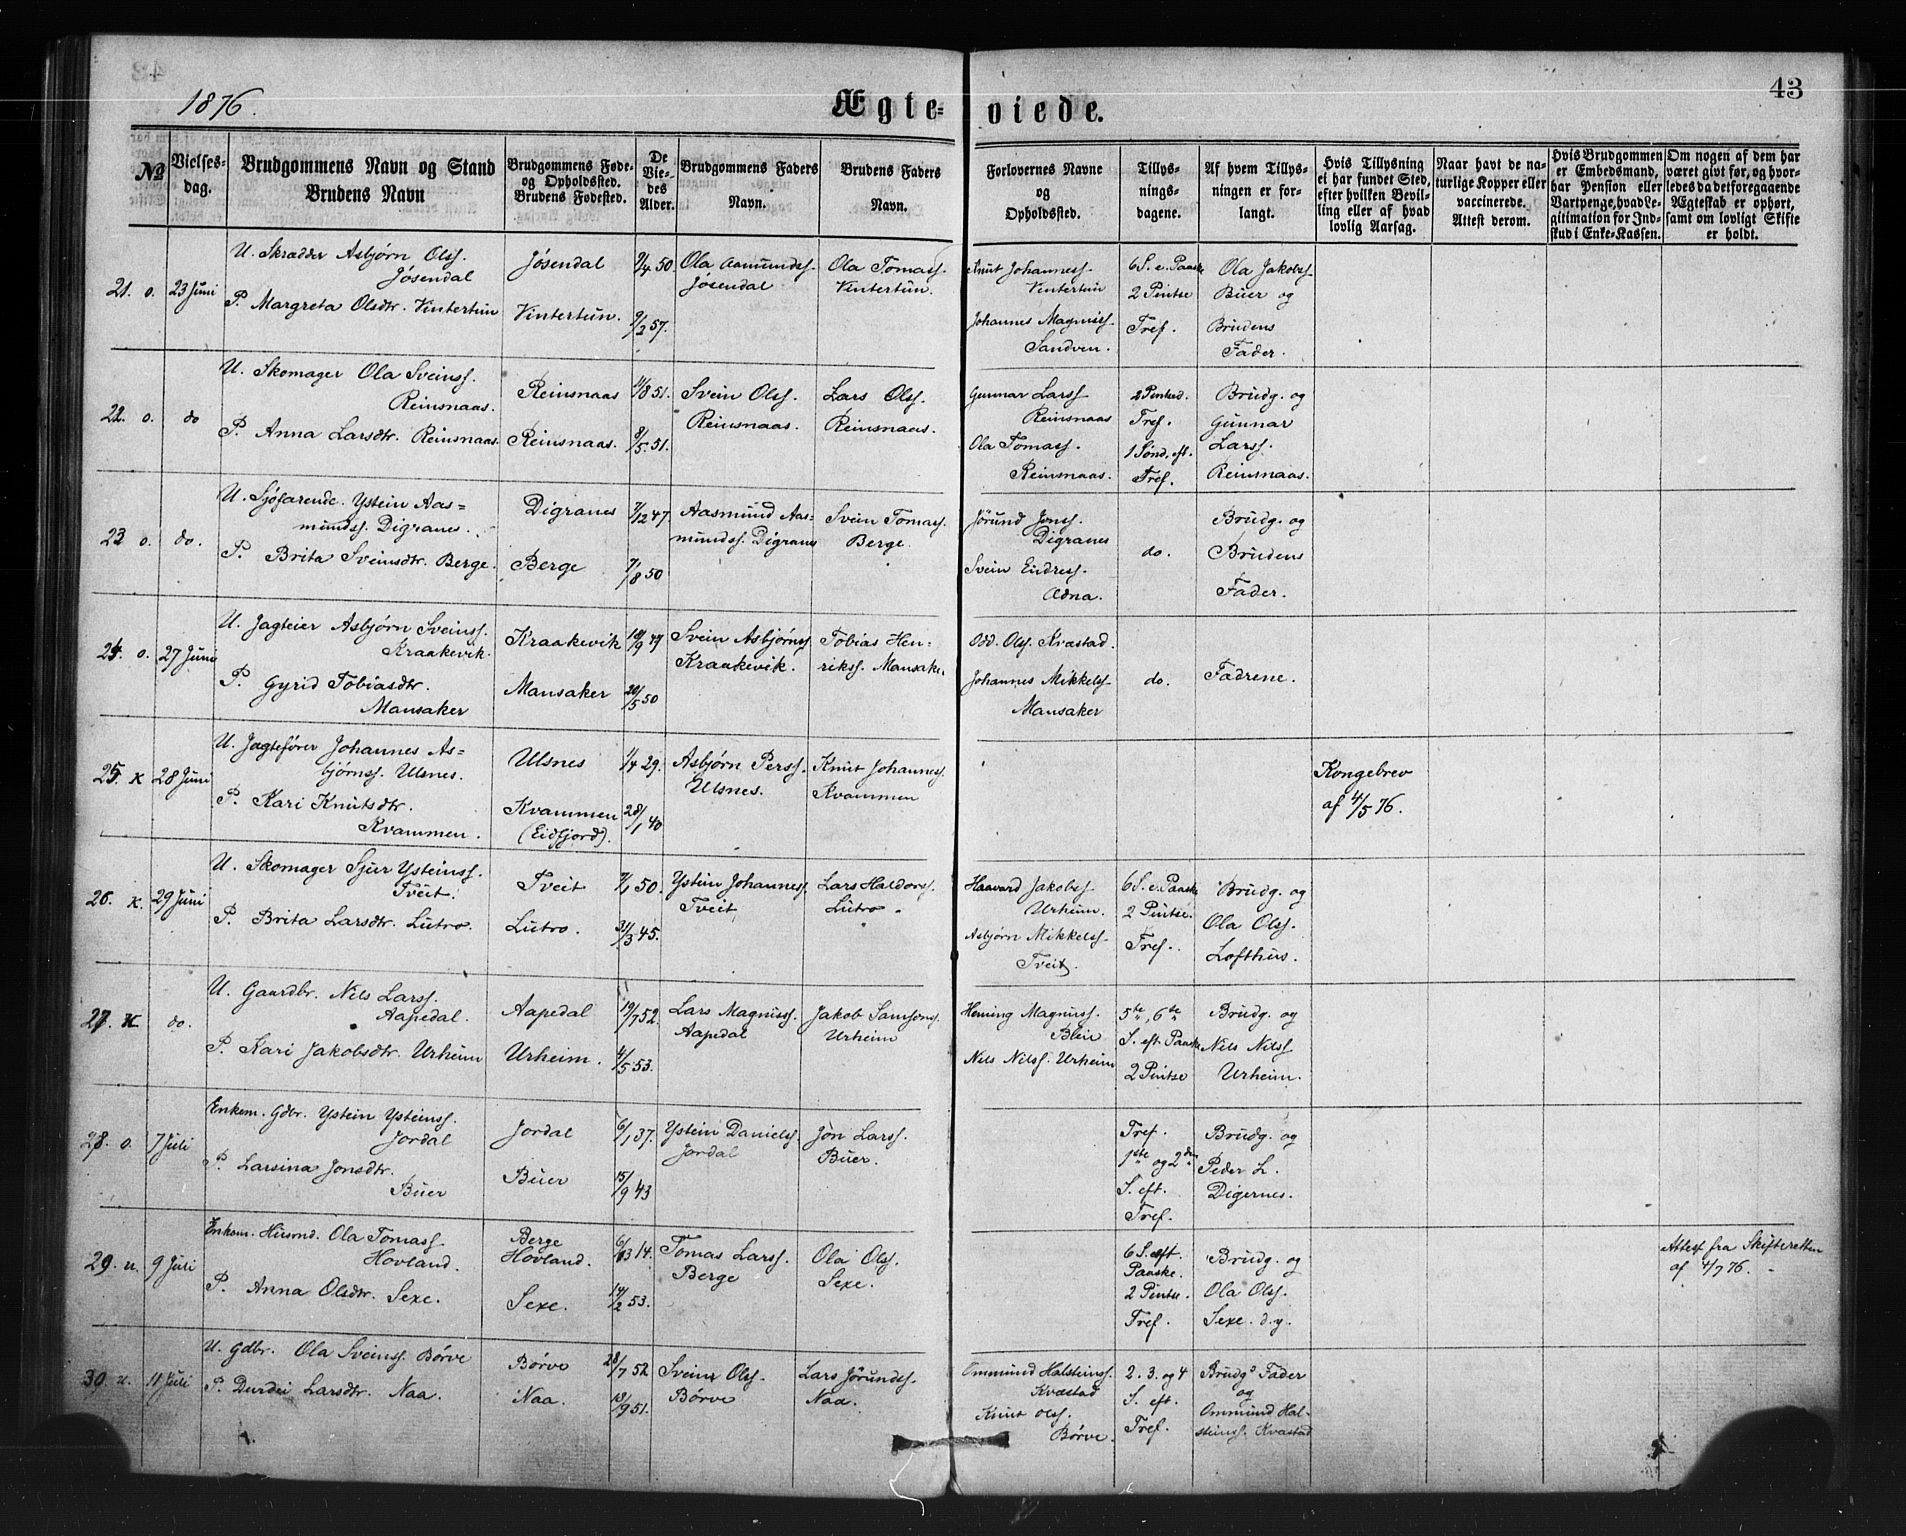 43
1876.
Ægteviede.
№
Vielsesdag.
Brudgommens Navn og Stand
Brudens Navn
Brudgommens Føde-
og Opholdssted.
Brudens Fødested.
De
Vie-
des
Alder.
Brudgommens Faders
Navn.
Brudens Faders
Navn.
Forlovernes Navne
og
Opholdssted.
Tillys-
nings-
dagene.
Af hvem Tillys-
ningen er for-
langt.
Hvis Tillysning
ei har fundet Sted,
efter hvilken Bevil-
ling eller af hvad
lovlig Aarsag.
Naar havt de na-
turlige Kopper eller
vaccinerede.
Attest derom.
Hvis Brudgommen
er Embedsmand,
har Pension eller
Vartpenge, hvad Le-
gitimation for Ind-
skud i Enke-Kassen.
Om nogen af dem har
været gift før, og hvor-
ledes da det foregaaende
Ægteskab er ophørt,
samt om lovligt Skifte
er holdt.
21. o. 23 Juni
U. Skrædder Asbjørn Olss.
Jøsendal
P. Margreta Olsdtr. Vintertun
Jøsendal
Vintertun.
9/4 50.
9/2 57.
Ola Aamundss.
Jøsendal
Ola Tomass.
Vintertun.
Knut Johanness.
Vintertun
Johannes Magnuss.
Sandven.
6 S. e. Paaske
2 Pintse
Tref.
Ola Jakobss.
Buer og
Brudens
Fader.
22. o. do
U. Skomager Ola Sveinss.
Reinsnaas.
P. Anna Larsdtr. Reinsnaas.
Reinsnaas
Reinsnaas.
11/8 51.
8/5 51.
Svein Olss.
Reinsnaas.
Lars Olss.
Reinsnaas.
Gunnar Larss
Reinsnaas
Ola Tomass.
Reinsnaas.
2 Pinsed.
Tref.
1 Sønd. eft.
Tref.
Brudg. og
Gunnar
Larss.
Reinsnaas.
23 o. do.
U. Sjøfarende. Ystein Aas=
mundss. Digranes.
P. Brita Sveinsdtr. Berge.
Digranes
Berge
7/12 47.
7/8 50
Aasmund Aas=
mundss. Digranes
Svein Tomass.
Berge.
Jørund Jonss.
Digranes
Svein Eidress.
Ædna.
do.
Brudg. og
Brudens
Fader.
24. o. 27 Juni
U. Jagteier Asbjørn Sveinss.
Kraakevik.
P. Gyrid Tobiasdtr.
Mansaker
Kraakevik
Mansaker
20/5 50
Svein Asbjørnss
Kraakevik.
Tobias Hen=
rikss. Mansaker
Odd. Olss. Kvæstad.
Johannes Mikkelss
Mansaker
do.
Fadrene.
25. K 28 Juni
U. Jagtefører Johannes As=
bjørnss. Ulsnes.
P. Kari Knutsdtr.
Kvammen.
Ulsnes
Kvammen
(Eidfjord).
1/4 29.
28/1 40
Asbjørn Perss.
Ulsnes.
Knut Johanness.
Kvammen
Kongebrev
af 4/5 76.
26. K. 29 Juni
U. Skomager Sjur Ysteinss.
Tveit.
P. Brita Larsdtr. Lutro.
Tveit
Lutro.
7/1 50.
31/3 45.
Ystein Johanness.
Tveit
Lars Haldorss.
Lutro.
Haavard Jakobss
Urheim.
Asbjørn Mikkelss
Tveit.
6 S. e. Paaske
2 Pintse.
Tref.
Brudg. og
Ola Olss.
Lofthus.
27. K. do.
U. Gaardbr. Nils Larss.
Aapedal.
P. Kari Jakobsdtr. Urheim
Aapedal
Urheim.
19/7 52.
4/5 53.
Lars Magnuss.
Aapedal
Jakob Samsons.
Urheim
Heming Magnuss.
Bleie
Nils Nilss. Urheim
5te, 6te
S. eft. Paaske
2 Pintse
Brudg. og
Nils Nilss
Urheim.
28. o. 7 Juli
Enkem. Gdbr. Ystein Ysteinss.
Jordal
P. Larsina Jonsdtr.
Buer
Jordal
Buer
6/1 37.
15/9 43
Ystein Danielss.
Jordal
Jon Larss.
Buer.
Tref.
1ste og 2den
S. eft.
Tref.
Brudg. og
Peder L.
Digernes.
29. u. 9 Juli
Enkem. Husmd. Ola Tomass
Hovland.
P. Anna Olsdtr. Sexe.
Berge
Hovland.
Sexe.
14/2 53.
Tomas Larss.
Berge
Ola Olss.
Sexe.
6 S. eft.
Paaske.
2 Pintse.
Tref.
Brudg. og
Ola Olss.
Sexe. d.y.
Attest fra Skifteretten
af 4/7 76.
30. u. 11 Juli
U. Gdbr. Ola Sveinss. Børve
P. Durdei Larsdtr. Naa.
Børve
Naa.
28/7 52.
18/9 51.
Svein Olss.
Børve
Lars Jørundss.
Naa.
Ommund Halsteinss.
Kvæstad
Knut Olss.
Børve.
2. 3. og 4
S. eft.
Tref.
Brudgs Fader
og
Ommund Hal-
steinss. Kvæstad